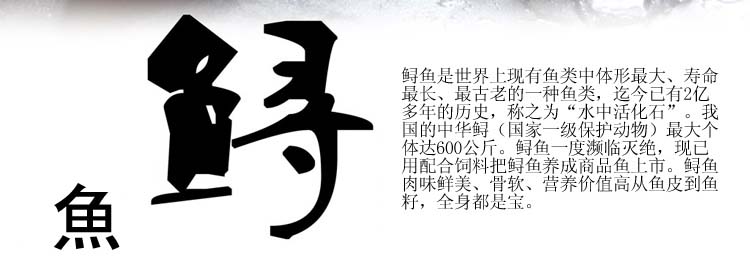 鲟
魚
鲟鱼是世界上现有鱼类中体形最大、寿命
最长、最古老的一种鱼类，迄今已有2亿
多年的历史，称之为“水中活化石”。我
国的中华鲟（国家一级保护动物）最大个
体达600公斤。鲟鱼一度濒临灭绝，现已
用配合饲料把鲟鱼养成商品鱼上市。鲟鱼
肉味鲜美、骨软、营养价值高从鱼皮到鱼
籽，全身都是宝。